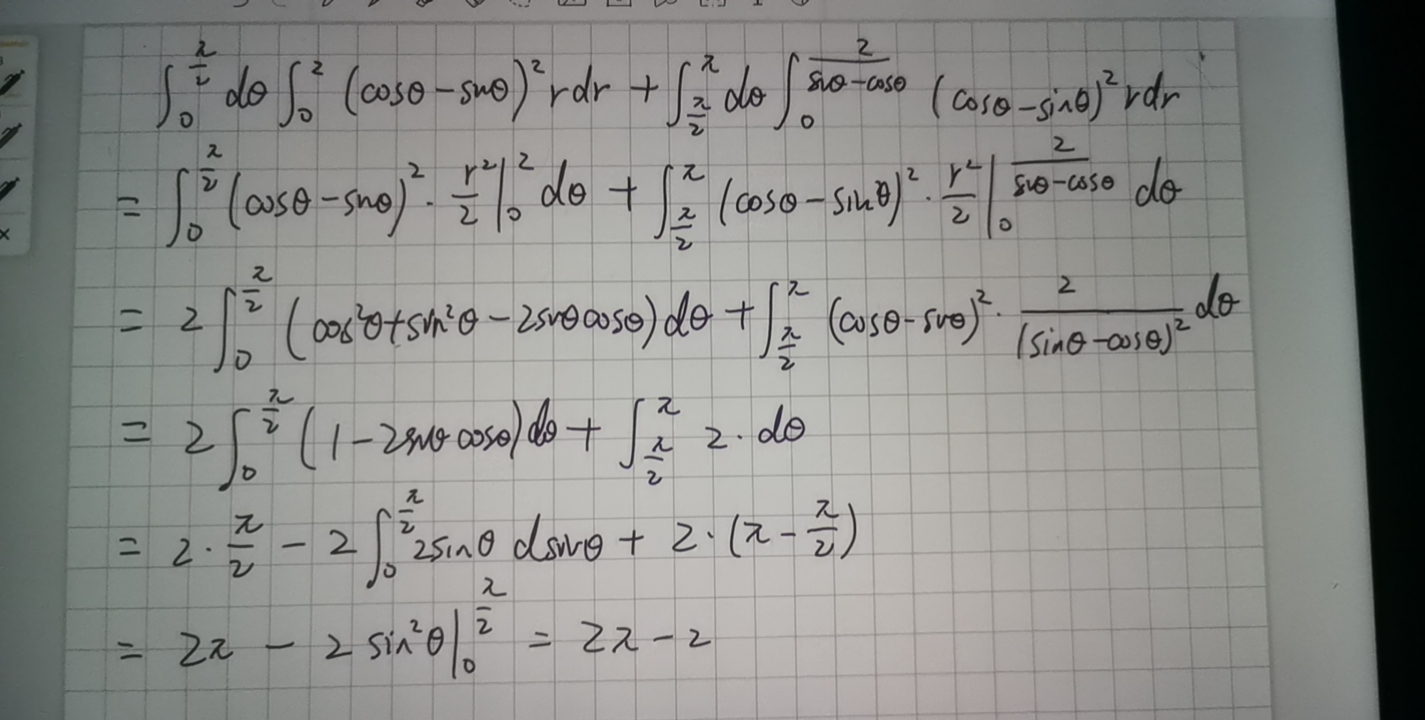 ∫_0^{π/2} dθ ∫_0^2 (cosθ − sinθ)² r dr + ∫_{π/2}^π dθ ∫_0^{2/(sinθ−cosθ)} (cosθ − sinθ)² r dr
= ∫_0^{π/2} (cosθ − sinθ)² · r²/2 |_0^2 dθ + ∫_{π/2}^π (cosθ − sinθ)² · r²/2 |_0^{2/(sinθ−cosθ)} dθ
= 2 ∫_0^{π/2} (cos²θ + sin²θ − 2sinθcosθ) dθ + ∫_{π/2}^π (cosθ − sinθ)² · 2/(sinθ − cosθ)² dθ
= 2 ∫_0^{π/2} (1 − 2sinθ cosθ) dθ + ∫_{π/2}^π 2 · dθ
= 2 · π/2 − 2 ∫_0^{π/2} 2sinθ dsinθ + 2 · (π − π/2)
= 2π − 2 sin²θ |_0^{π/2} = 2π − 2